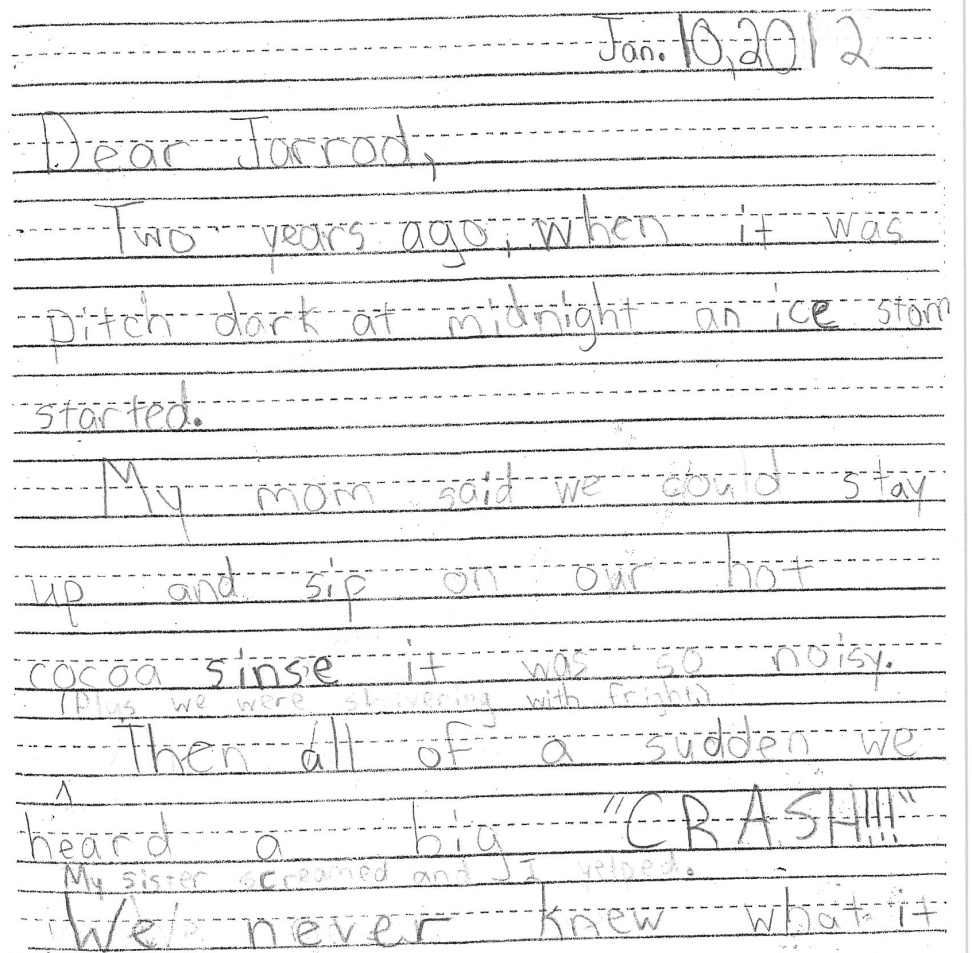 Jan. 10, 2012
Dear Jarrod,
Two years ago, when it was
pitch dark at midnight an ice storm
started.
My mom said we could stay
up and sip on our hot
cocoa sinse it was so noisy.
(Plus we were shivering with fright)
Then all of a sudden we
^
heard a big "CRASH!!!"
My sister screamed and I yelped.
We never knew what it